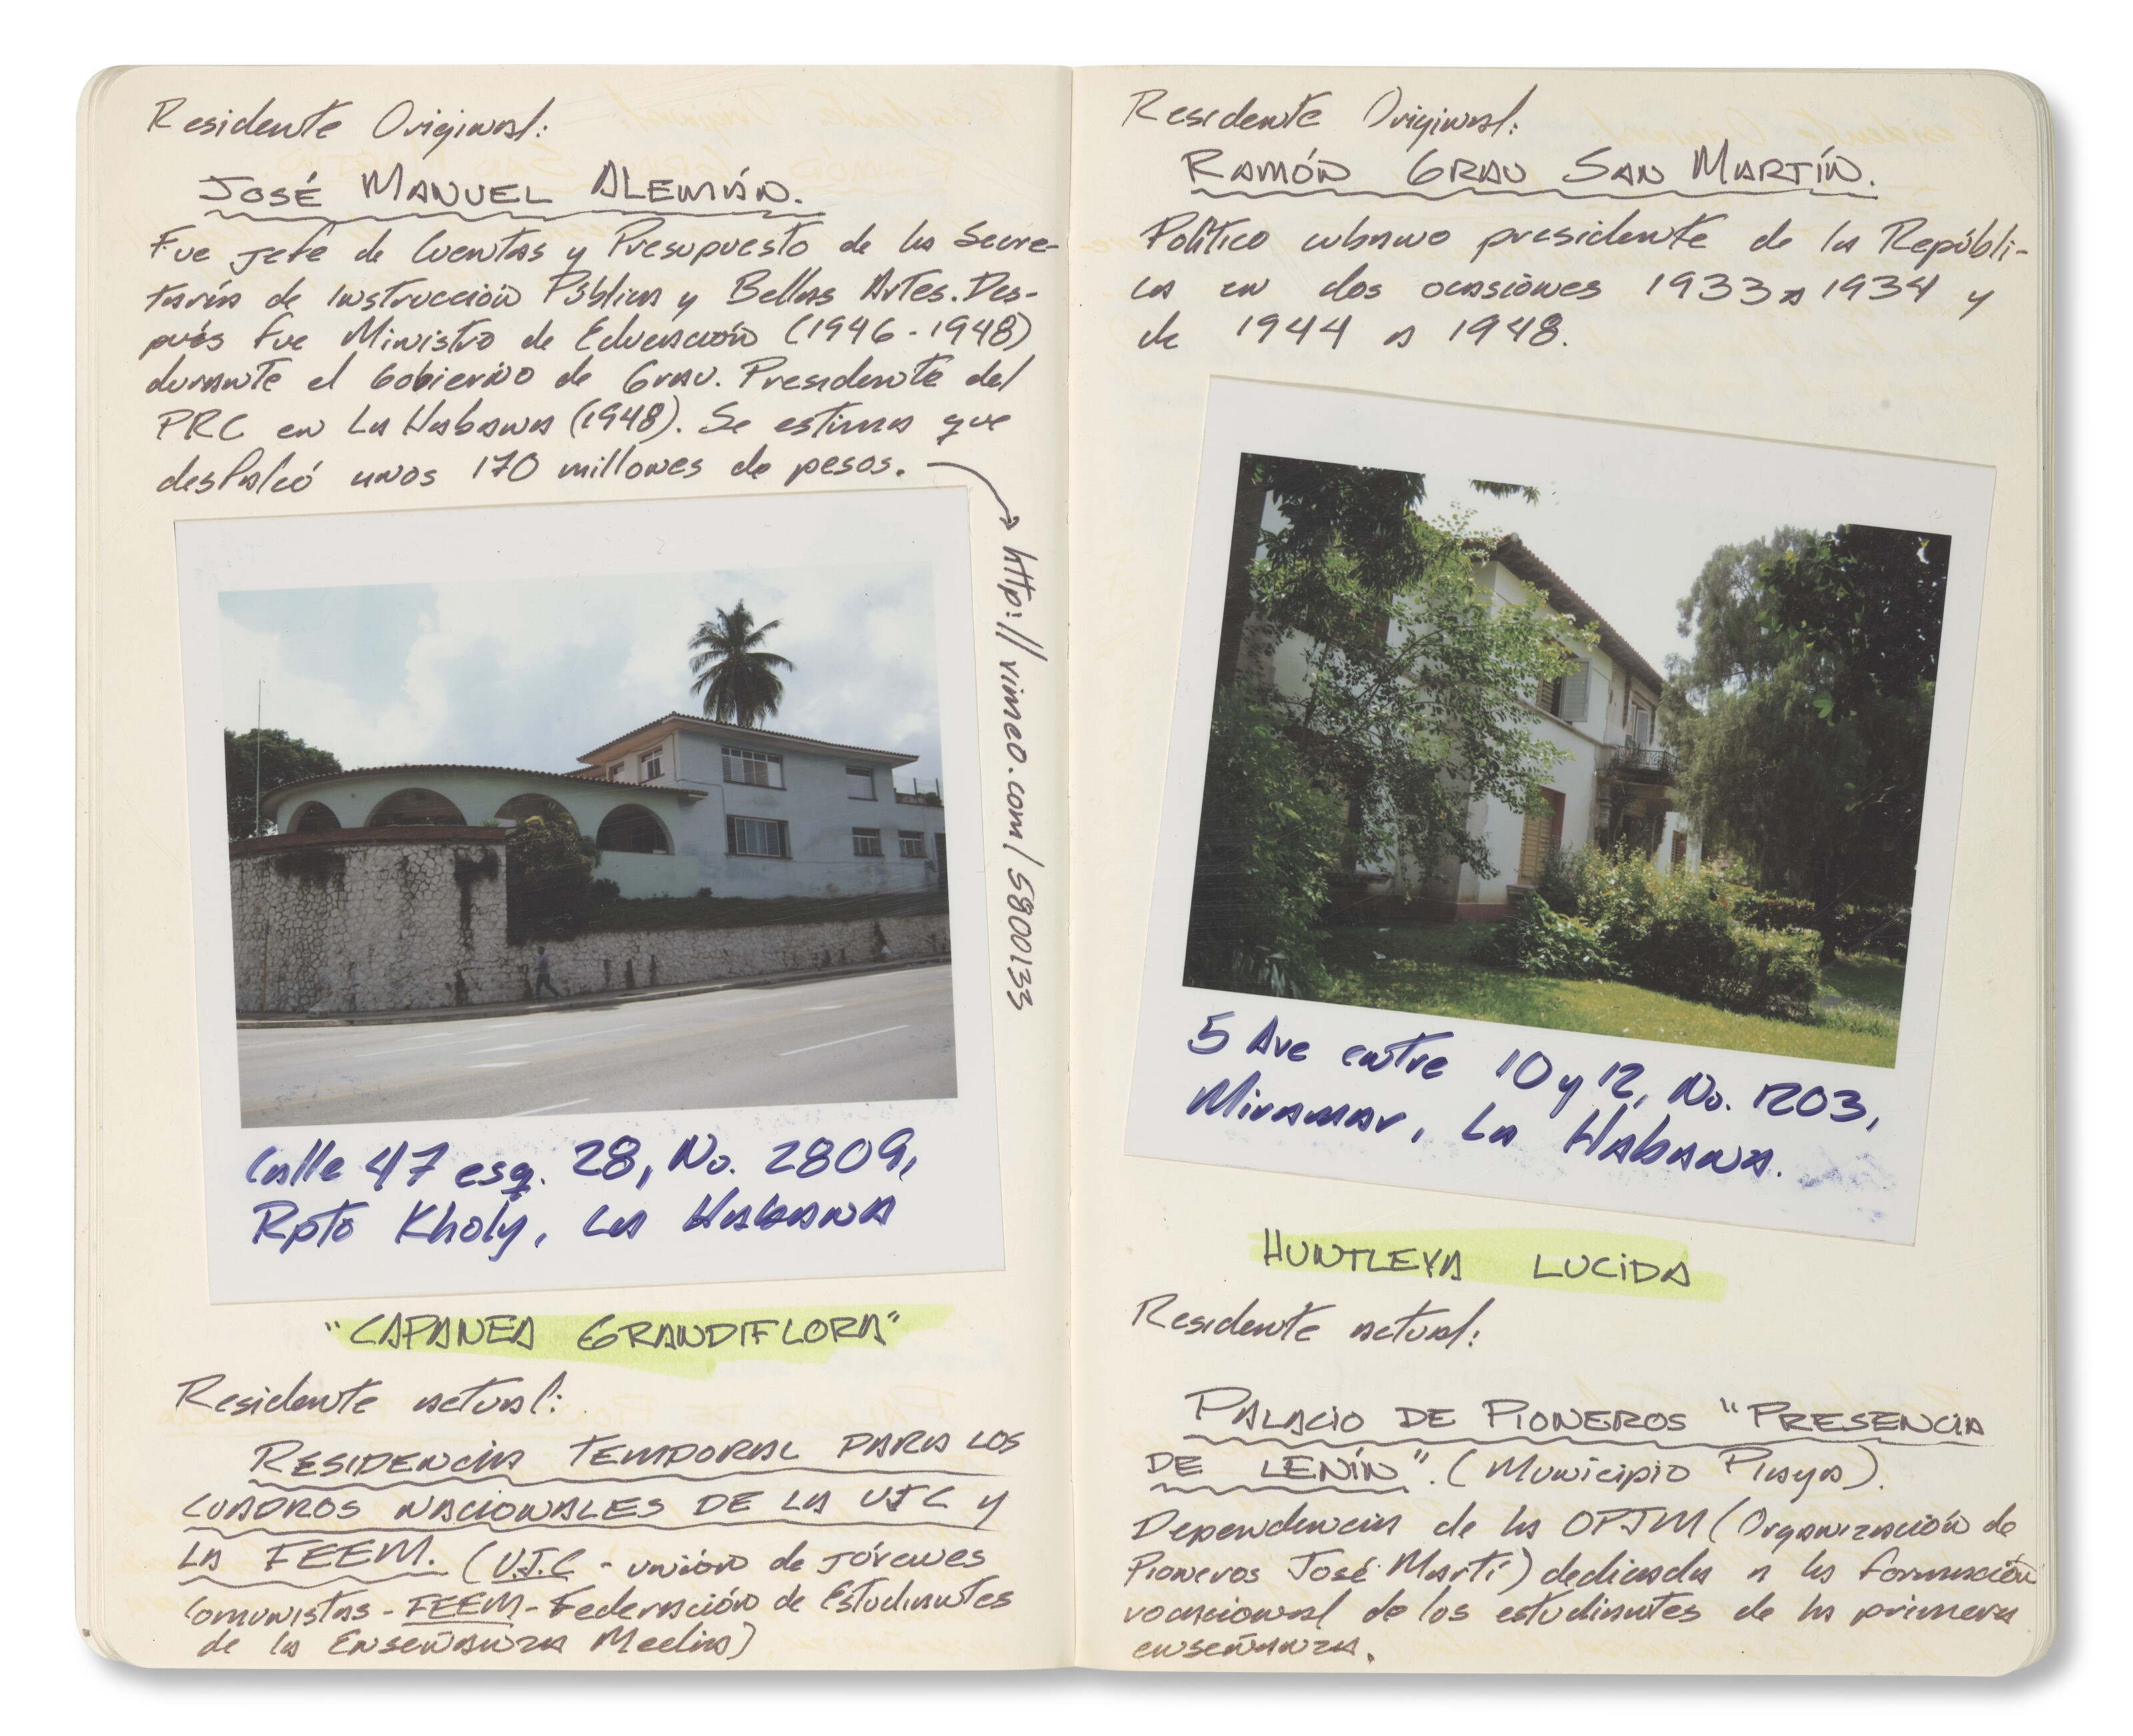 Residente Original:
JOSÉ MANUEL ALEMÁN.
Fue jefe de Cuentas y Presupuesto de la Secre-
taría de Instrucción Pública y Bellas Artes. Des-
pués fue Ministro de Educación (1946-1948)
durante el Gobierno de Grau. Presidente del
PRC en La Habana (1948). Se estima que
desfalcó unos 170 millones de pesos.
http://vimeo.com/5800133
Calle 47 esq. 28, No. 2809,
Rpto Kholy, La Habana
"CAPANEA GRANDIFLORA"
Residente actual:
RESIDENCIA TEMPORAL PARA LOS
CUADROS NACIONALES DE LA UJC y
LA FEEM. (UJC - unión de jóvenes
comunistas - FEEM - Federación de Estudiantes
de la Enseñanza Media)
Residente Original:
RAMÓN GRAU SAN MARTÍN.
Político cubano presidente de la Repúbli-
ca en dos ocasiones 1933 a 1934 y
de 1944 a 1948.
5 Ave entre 10 y 12, No. 1203,
Miramar, La Habana.
HUNTLEYA LUCIDA
Residente actual:
PALACIO DE PIONEROS "PRESENCIA
DE LENÍN". (Municipio Playa).
Dependencia de la OPJM (Organización de
Pioneros José Martí) dedicada a la formación
vocacional de los estudiantes de la primera
enseñanza.